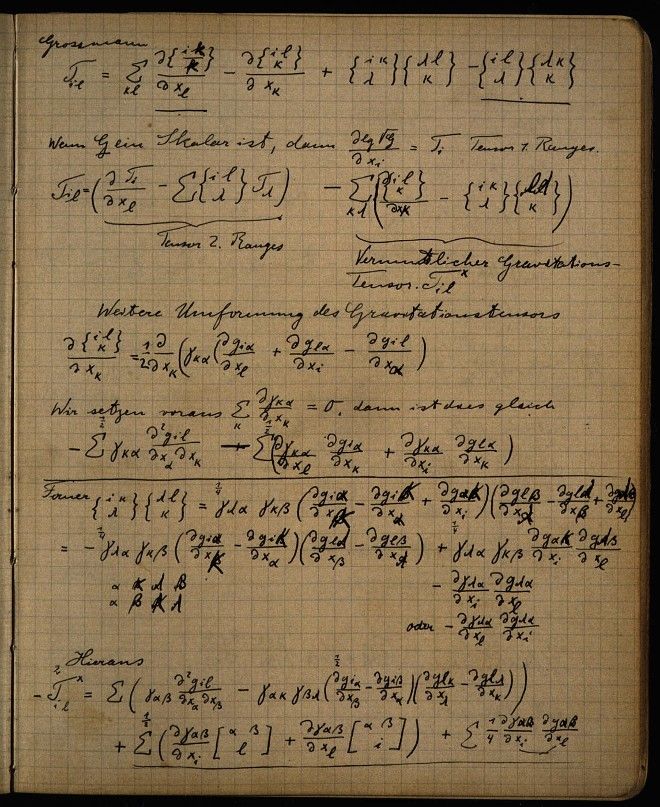 Grossmann
T_{il} = Σ_{κl} ∂{i κ \atop κ}/∂x_l − ∂{i l \atop κ}/∂x_κ + {i κ \atop λ}{λ l \atop κ} − {i l \atop λ}{λ κ \atop κ}
Wenn G ein Skalar ist, dann ∂lg√G/∂x_i = T_i Tensor 1. Ranges.
T_{il} = (∂T_i/∂x_l − Σ{i l \atop λ}T_λ) − Σ_{κλ}(∂{i l \atop κ}/∂x_κ − {i κ \atop λ}{λ l \atop κ})
Tensor 2. Ranges
Vermutlicher Gravitations-
Tensor. T_{il}^x
Weitere Umformung des Gravitationstensors
∂{i l \atop κ}/∂x_κ = 1/2 ∂/∂x_κ (γ_{κα}(∂g_{iα}/∂x_l + ∂g_{lα}/∂x_i − ∂g_{il}/∂x_α)
Wir setzen voraus Σ_κ ∂γ_{κα}/∂x_κ = 0, dann ist dies gleich
− 1/2 Σ γ_{κα} ∂²g_{il}/∂x_α∂x_κ + 1/2 Σ(∂γ_{κα}/∂x_l ∂g_{iα}/∂x_κ + ∂γ_{κα}/∂x_i ∂g_{lα}/∂x_κ)
Ferner {i κ \atop λ}{λ l \atop κ} = 1/4 γ_{λα} γ_{κβ} (∂g_{iα}/∂x_κ − ∂g_{iκ}/∂x_α + ∂g_{ακ}/∂x_i)(∂g_{lβ}/∂x_λ − ∂g_{lλ}/∂x_β + ∂g_{λβ}/∂x_l)
= − 1/4 γ_{λα} γ_{κβ} (∂g_{iα}/∂x_κ − ∂g_{iκ}/∂x_α)(∂g_{lλ}/∂x_β − ∂g_{lβ}/∂x_λ) + 1/4 γ_{λα} γ_{κβ} ∂g_{ακ}/∂x_i ∂g_{λβ}/∂x_l
α κ λ β
α β κ λ
− ∂γ_{λα}/∂x_i ∂g_{λα}/∂x_l
oder − ∂γ_{λα}/∂x_l ∂g_{λα}/∂x_i
Hieraus
− 2 T_{il}^x = Σ(γ_{αβ} ∂²g_{il}/∂x_α∂x_β − 1/2 γ_{ακ} γ_{βλ} (∂g_{iα}/∂x_β − ∂g_{iβ}/∂x_α)(∂g_{lκ}/∂x_λ − ∂g_{lλ}/∂x_κ))
+ 1/2 Σ(∂γ_{αβ}/∂x_i [α β \atop l] + ∂γ_{αβ}/∂x_l [α β \atop i]) + Σ 1/4 ∂γ_{αβ}/∂x_i ∂g_{αβ}/∂x_l